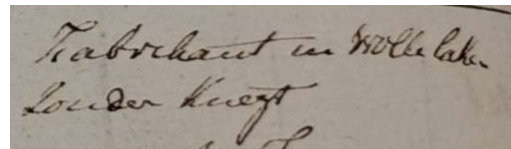 Fabrikant in Wolle lake
zonder Knegt